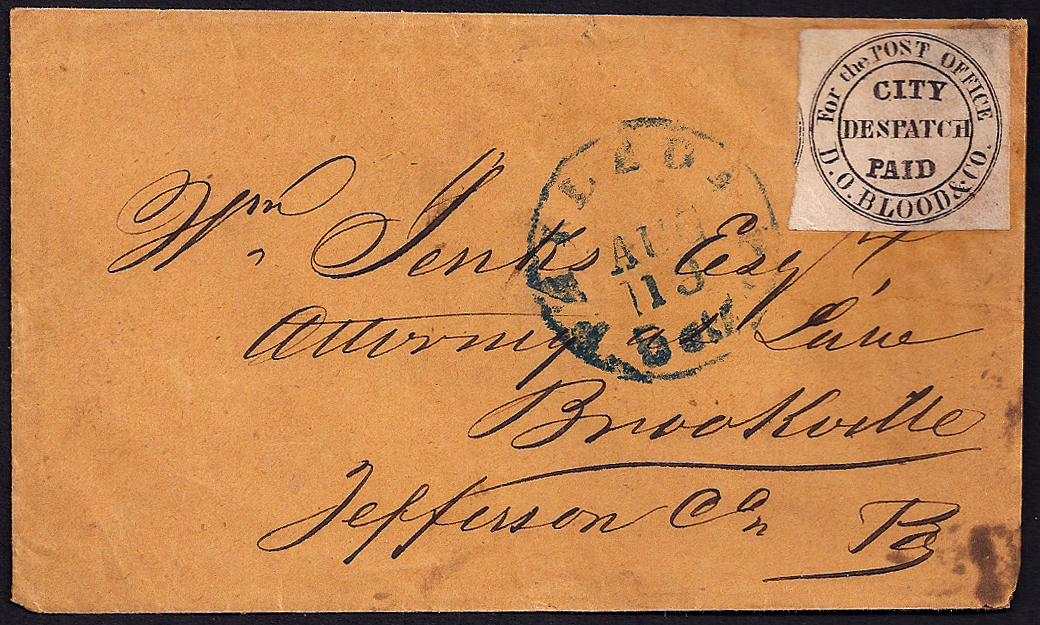 For the POST OFFICE
CITY
DESPATCH
PAID
D.O. BLOOD & CO.
AUG
Wm Jenks Esq
Attorney at Law
Brookville
Jefferson Co Pa